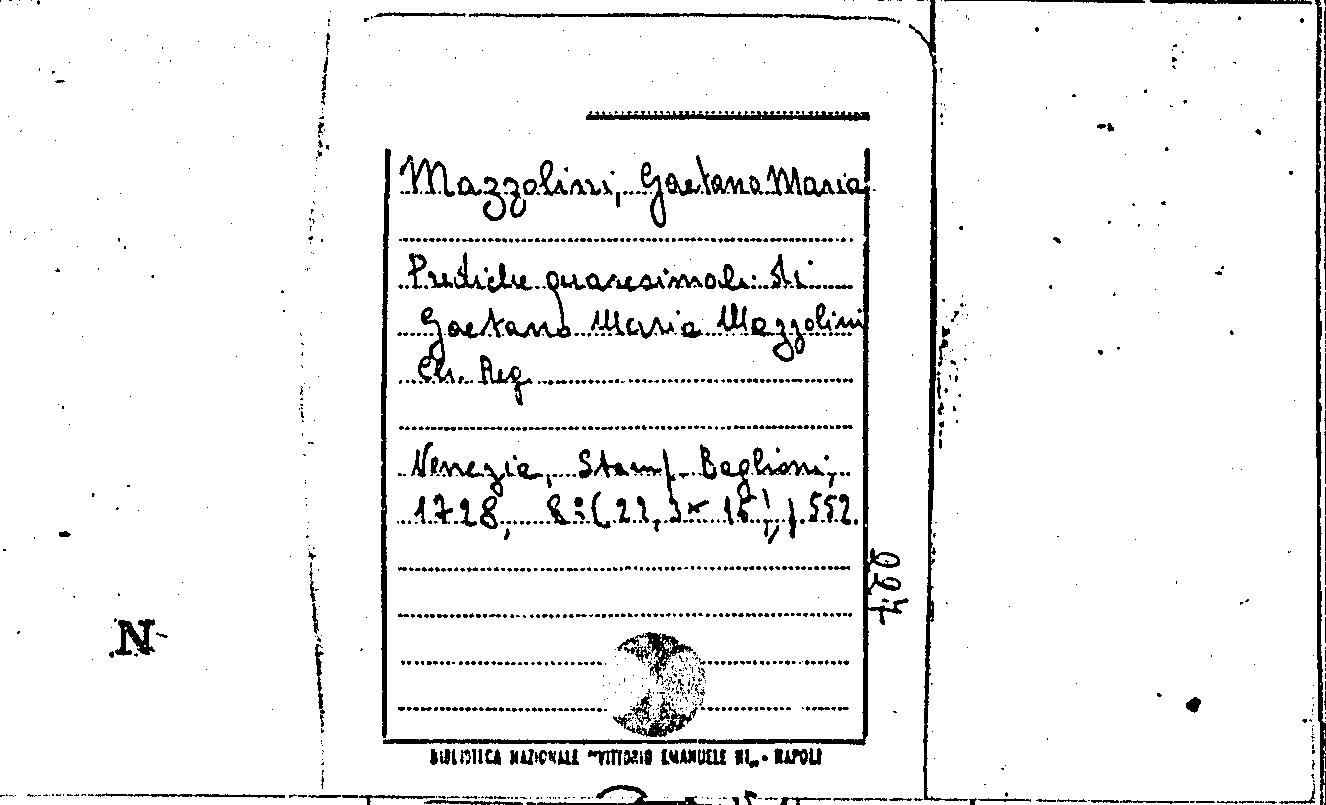 Mazzolini, Gaetano Maria
Prediche quaresimali di
Gaetano Maria Mazzolini
Ch. Reg.
Venezia, Stamp. Baglioni,
1728, 8º (22,3 x 16), p. 552.
N
BIBLIOTECA NAZIONALE "VITTORIO EMANUELE III" - NAPOLI